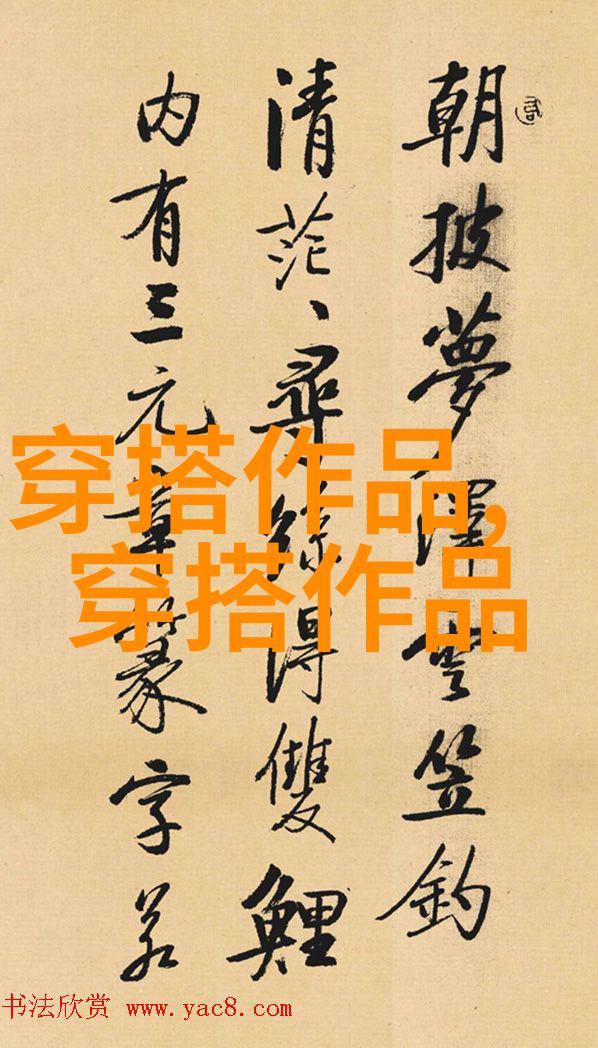 朝披夢澤雲笠釣
清茫〻尋絲得雙鯉
内有三元章篆字若
穿搭作品,
穿搭作品
书法欣赏 www.yac8.com